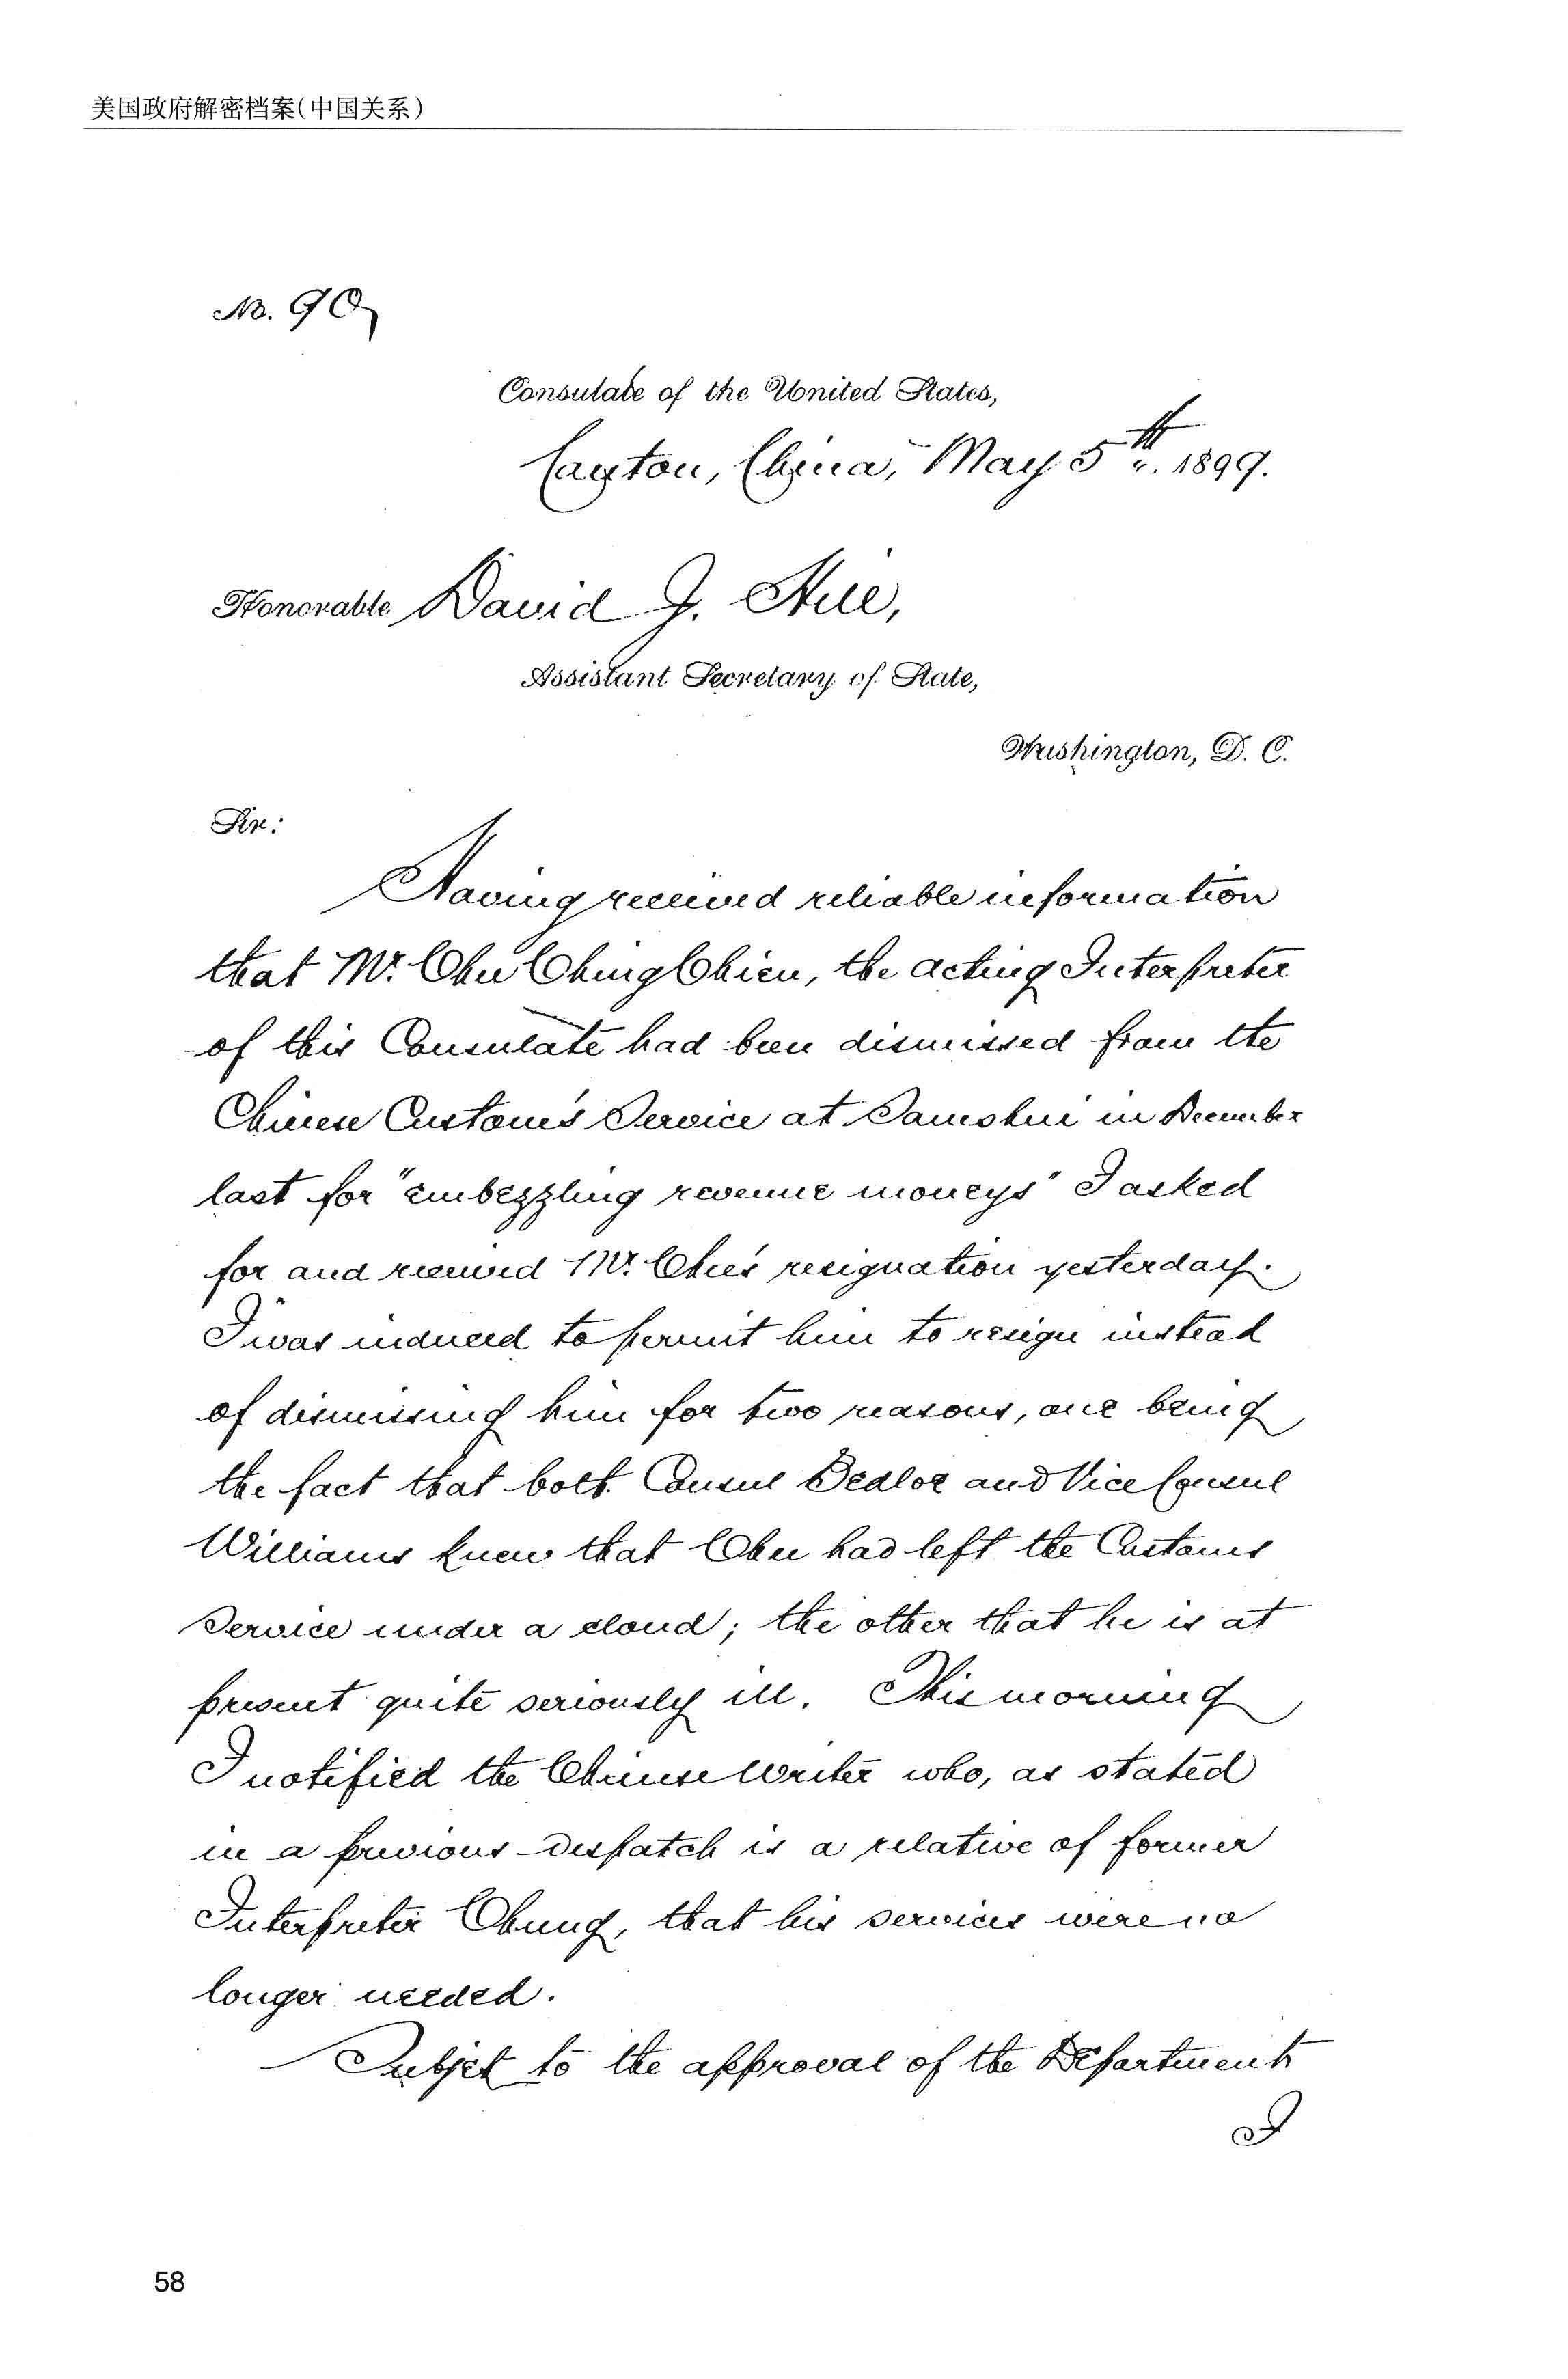 美国政府解密档案(中国关系)
No. 90
Consulate of the United States,
Canton, China, May 5th. 1899.
Honorable David J. Hill,
Assistant Secretary of State,
Washington, D. C.
Sir:
Having received reliable information
that Mr. Chu Ching Chien, the acting Interpreter
of this Consulate had been dismissed from the
Chinese Customs Service at Samshui in December
last for "embezzling revenue moneys" I asked
for and received Mr. Chu's resignation yesterday.
I was induced to permit him to resign instead
of dismissing him for two reasons, one being
the fact that both Consul Bedloe and Vice Consul
Williams knew that Chu had left the Customs
Service under a cloud; the other that he is at
present quite seriously ill. This morning
I notified the Chinese Writer who, as stated
in a previous dispatch is a relative of former
Interpreter Chung, that his services were no
longer needed.
Subject to the approval of the Department
I
58